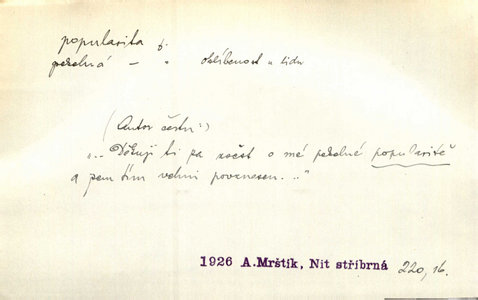 popularita f.
pekelná – " oblíbenost u lidu
(Autor čertu:)
„.. Děkuji ti za zočet o mé pekelné popularitě
a jsem tím velmi povznesen..."
1926 A.Mrštík, Nit stříbrná 220, 16.